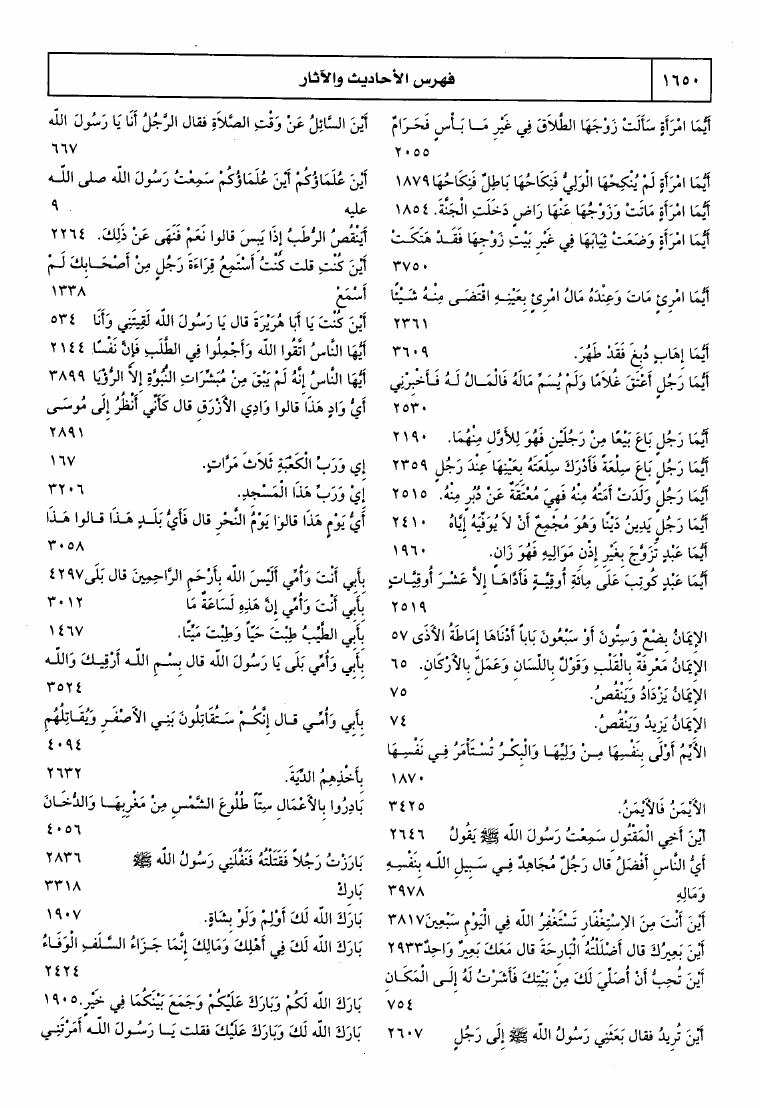 ١٦٥٠
فهرس الأحاديث والآثار
أَيُّمَا امْرَأَةٍ سَأَلَتْ زَوْجَهَا الطَّلاَقَ فِي غَيْرِ مَا بَأْسٍ فَحَرَامٌ
٢٠٥٥
أَيُّمَا امْرَأَةٍ لَمْ يُنْكِحْهَا الْوَلِيُّ فَنِكَاحُهَا بَاطِلٌ فَنِكَاحُهَا ١٨٧٩
أَيُّمَا امْرَأَةٍ مَاتَتْ وَزَوْجُهَا عَنْهَا رَاضٍ دَخَلَتِ الْجَنَّةَ. ١٨٥٤
أَيُّمَا امْرَأَةٍ وَضَعَتْ ثِيَابَهَا فِي غَيْرِ بَيْتِ زَوْجِهَا فَقَدْ هَتَكَتْ
٣٧٥٠
أَيُّمَا امْرِئٍ مَاتَ وَعِنْدَهُ مَالُ امْرِئٍ بِعَيْنِهِ اقْتَضَى مِنْهُ شَيْئًا
٢٣٦١
أَيُّمَا إِهَابٍ دُبِغَ فَقَدْ طَهُرَ. ٣٦٠٩
أَيُّمَا رَجُلٍ أَعْتَقَ غُلاَمًا وَلَمْ يُسَمِّ مَالَهُ فَالْمَالُ لَهُ فَأَخْبِرْنِي
٢٥٣٠
أَيُّمَا رَجُلٍ بَاعَ بَيْعًا مِنْ رَجُلَيْنِ فَهُوَ لِلأَوَّلِ مِنْهُمَا. ٢١٩٠
أَيُّمَا رَجُلٍ بَاعَ سِلْعَةً فَأَدْرَكَ سِلْعَتَهُ بِعَيْنِهَا عِنْدَ رَجُلٍ ٢٣٥٩
أَيُّمَا رَجُلٍ وَلَدَتْ أَمَتُهُ مِنْهُ فَهِيَ مُعْتَقَةٌ عَنْ دُبُرٍ مِنْهُ. ٢٥١٥
أَيُّمَا رَجُلٍ يَدِينُ دَيْنًا وَهُوَ مُجْمِعٌ أَنْ لاَ يُوَفِّيَهُ إِيَّاهُ ٢٤١٠
أَيُّمَا عَبْدٍ تَزَوَّجَ بِغَيْرِ إِذْنِ مَوَالِيهِ فَهُوَ زَانٍ. ١٩٦٠
أَيُّمَا عَبْدٍ كُوتِبَ عَلَى مِائَةِ أُوقِيَّةٍ فَأَدَّاهَا إِلاَّ عَشْرَ أُوقِيَّاتٍ
٢٥١٩
الإِيمَانُ بِضْعٌ وَسِتُّونَ أَوْ سَبْعُونَ بَاباً أَدْنَاهَا إِمَاطَةُ الأَذَى ٥٧
الإِيمَانُ مَعْرِفَةٌ بِالْقَلْبِ وَقَوْلٌ بِاللِّسَانِ وَعَمَلٌ بِالأَرْكَانِ. ٦٥
الإِيمَانُ يَزْدَادُ وَيَنْقُصُ. ٧٥
الإِيمَانُ يَزِيدُ وَيَنْقُصُ. ٧٤
الأَيِّمُ أَوْلَى بِنَفْسِهَا مِنْ وَلِيِّهَا وَالْبِكْرُ تُسْتَأْمَرُ فِي نَفْسِهَا
١٨٧٠
الأَيْمَنُ فَالأَيْمَنُ. ٣٤٢٥
أَيْنَ أَخِي الْمَقْتُولِ سَمِعْتُ رَسُولَ الله ﷺ يَقُولُ ٢٦٤٦
أَيُّ النَّاسِ أَفْضَلُ قال رَجُلٌ مُجَاهِدٌ فِي سَبِيلِ اللهِ بِنَفْسِهِ
وَمَالِهِ ٣٩٧٨
أَيْنَ أَنْتَ مِنَ الاِسْتِغْفَارِ تَسْتَغْفِرُ الله فِي الْيَوْمِ سَبْعِينَ ٣٨١٧
أَيْنَ بَعِيرُكَ قال أَضْلَلْتُهُ الْبَارِحَةَ قال مَعَكَ بَعِيرٌ وَاحِدٌ ٢٩٣٣
أَيْنَ تُحِبُّ أَنْ أُصَلِّيَ لَكَ مِنْ بَيْتِكَ فَأَشَرْتُ لَهُ إِلَى الْمَكَانِ
٧٥٤
أَيْنَ تُرِيدُ فقال بَعَثَنِي رَسُولُ الله ﷺ إِلَى رَجُلٍ ٢٦٠٧
أَيْنَ السَّائِلُ عَنْ وَقْتِ الصَّلاَةِ فقال الرَّجُلُ أَنَا يَا رَسُولَ الله
٦٦٧
أَيْنَ عُلَمَاؤُكُمْ أَيْنَ عُلَمَاؤُكُمْ سَمِعْتُ رَسُولَ الله صلى الله
عليه ٩
أَيَنْقُصُ الرُّطَبُ إِذَا يَبِسَ قالوا نَعَمْ فَنَهَى عَنْ ذَلِكَ. ٢٢٦٤
أَيْنَ كُنْتِ قلت كُنْتُ أَسْتَمِعُ قِرَاءَةَ رَجُلٍ مِنْ أَصْحَابِكَ لَمْ
أَسْمَعْ ١٣٣٨
أَيْنَ كُنْتَ يَا أَبَا هُرَيْرَةَ قال يَا رَسُولَ الله لَقِيتَنِي وَأَنَا ٥٣٤
أَيُّهَا النَّاسُ اتَّقُوا الله وَأَجْمِلُوا فِي الطَّلَبِ فَإِنَّ نَفْسًا ٢١٤٤
أَيُّهَا النَّاسُ إِنَّهُ لَمْ يَبْقَ مِنْ مُبَشِّرَاتِ النُّبُوَّةِ إِلاَّ الرُّؤْيَا ٣٨٩٩
أَيُّ وَادٍ هَذَا قالوا وَادِي الأَزْرَقِ قال كَأَنِّي أَنْظُرُ إِلَى مُوسَى
٢٨٩١
إِي وَرَبِّ الْكَعْبَةِ ثَلاَثَ مَرَّاتٍ. ١٦٧
إِيْ وَرَبِّ هَذَا الْمَسْجِدِ. ٣٢٠٦
أَيُّ يَوْمٍ هَذَا قالوا يَوْمُ النَّحْرِ قال فَأَيُّ بَلَدٍ هَذَا قالوا هَذَا
٣٠٥٨
بِأَبِي أَنْتَ وَأُمِّي أَلَيْسَ الله بِأَرْحَمِ الرَّاحِمِينَ قال بَلَى ٤٢٩٧
بِأَبِي أَنْتَ وَأُمِّي إِنَّ هَذِهِ لَسَاعَةٌ مَا ٣٠١٢
بِأَبِي الطَّيِّبُ طِبْتَ حَيًّا وَطِبْتَ مَيِّتًا. ١٤٦٧
بِأَبِي وَأُمِّي بَلَى يَا رَسُولَ الله قال بِسْمِ اللهِ أَرْقِيكَ وَالله
٣٥٢٤
بِأَبِي وَأُمِّي قال إِنَّكُمْ سَتُقَاتِلُونَ بَنِي الأَصْفَرِ وَيُقَاتِلُهُمُ
٤٠٩٤
بِأَخْذِهِمُ الدِّيَةَ. ٢٦٣٢
بَادِرُوا بِالأَعْمَالِ سِتًّا طُلُوعَ الشَّمْسِ مِنْ مَغْرِبِهَا وَالدُّخَانَ
٤٠٥٦
بَارَزْتُ رَجُلاً فَقَتَلْتُهُ فَنَفَّلَنِي رَسُولُ الله ﷺ ٢٨٣٦
بَارِكْ ٣٣١٨
بَارَكَ الله لَكَ أَوْلِمْ وَلَوْ بِشَاةٍ. ١٩٠٧
بَارَكَ الله لَكَ فِي أَهْلِكَ وَمَالِكَ إِنَّمَا جَزَاءُ السَّلَفِ الْوَفَاءُ
٢٤٢٤
بَارَكَ الله لَكُمْ وَبَارَكَ عَلَيْكُمْ وَجَمَعَ بَيْنَكُمَا فِي خَيْرٍ. ١٩٠٥
بَارَكَ الله لَكَ وَبَارَكَ عَلَيْكَ فقلت يَا رَسُولَ اللهِ أَمَرْتَنِي